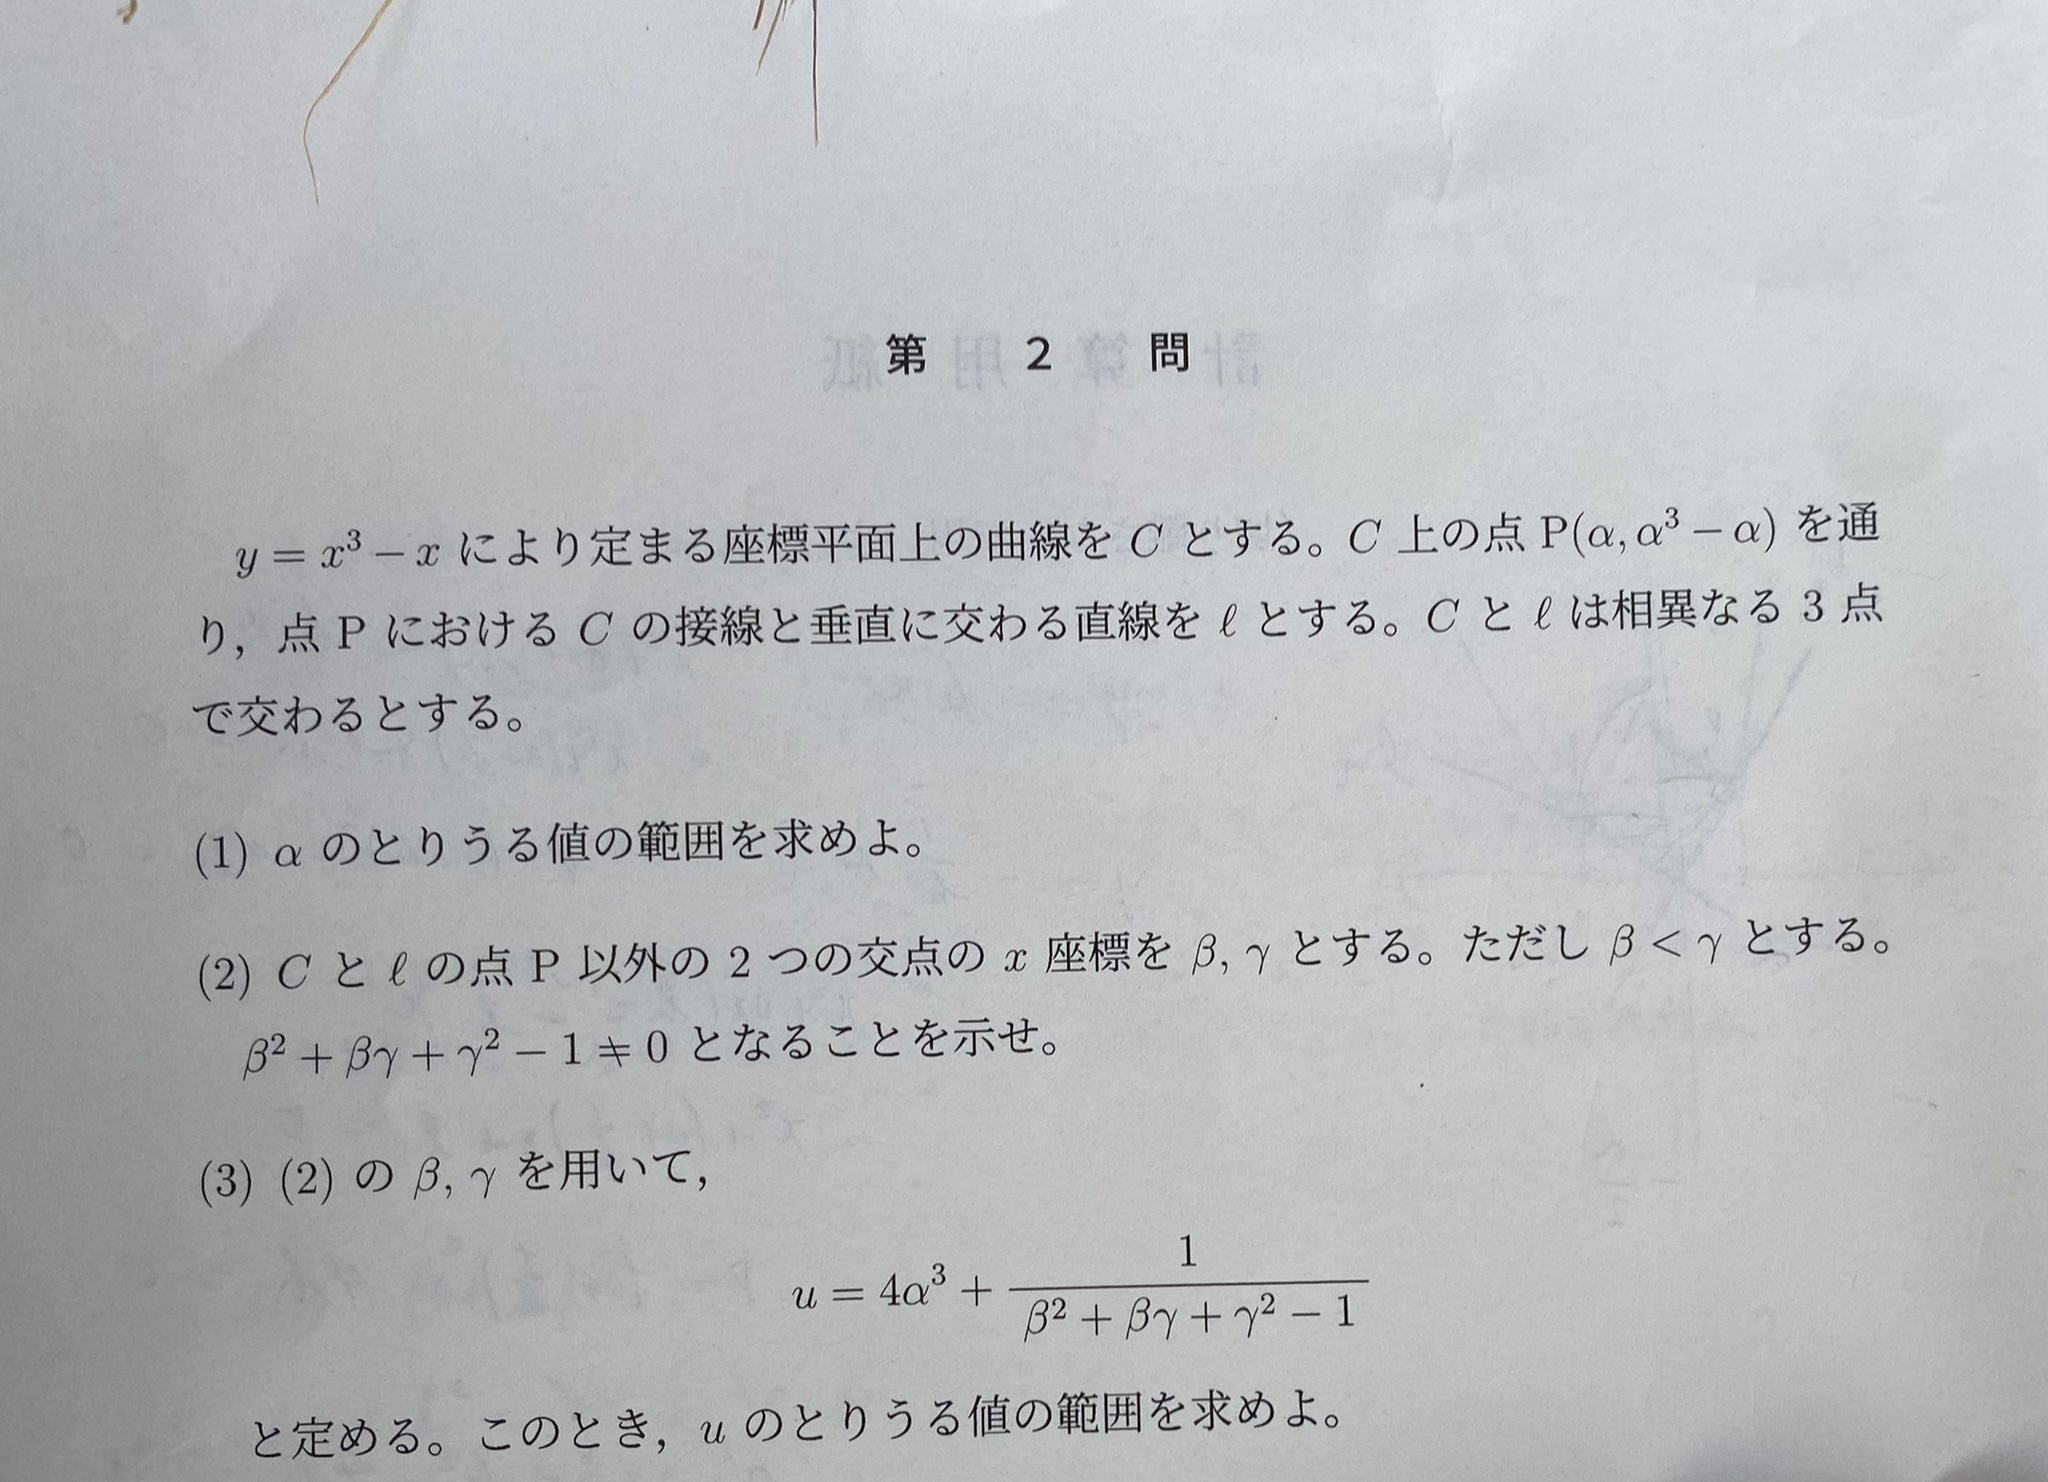 第 2 問
y = x³ − x により定まる座標平面上の曲線を C とする。C 上の点 P(α, α³ − α) を通
り，点 P における C の接線と垂直に交わる直線を ℓ とする。C と ℓ は相異なる 3 点
で交わるとする。
(1) α のとりうる値の範囲を求めよ。
(2) C と ℓ の点 P 以外の 2 つの交点の x 座標を β, γ とする。ただし β < γ とする。
β² + βγ + γ² − 1 ≠ 0 となることを示せ。
(3) (2) の β, γ を用いて，
u = 4α³ + 1/(β² + βγ + γ² − 1)
と定める。このとき，u のとりうる値の範囲を求めよ。